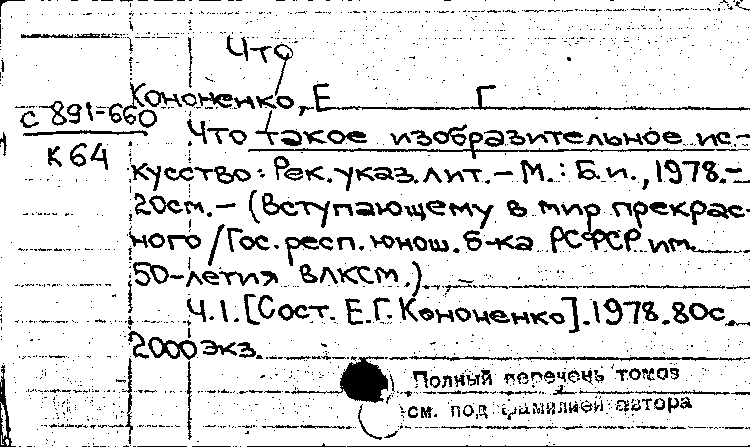 Что
Кононенко, Е Г
с 891-660
К 64
Что такое изобразительное ис-
кусство: Рек. указ. лит. – М.: Б.и., 1978. –
20см. – (Вступающему в мир прекрас-
ного / Гос. респ. юнош. б-ка РСФСР им.
50-летия ВЛКСМ.)
Ч.1. [Сост. Е.Г. Кононенко]. 1978. 80с.
2000 экз.
Полный перечень томов
см. под фамилией автора